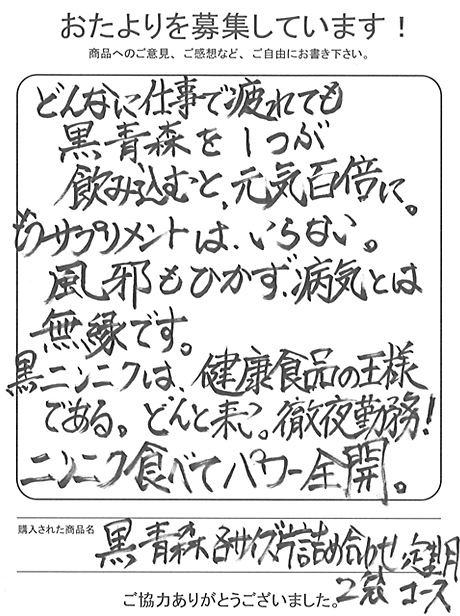 おたよりを募集しています！
商品へのご意見、ご感想など、ご自由にお書き下さい。
どんなに仕事で疲れても
黒青森を1つぶ
飲み込むと、元気百倍に。
サプリメントは、いらない。
風邪もひかず、病気とは
無縁です。
黒ニンニクは、健康食品の王様
である。どんと来い。徹夜勤務！
ニンニク食べてパワー全開。
購入された商品名
黒青森各サイズ片詰め合わせ！定期
2袋コース
ご協力ありがとうございました。